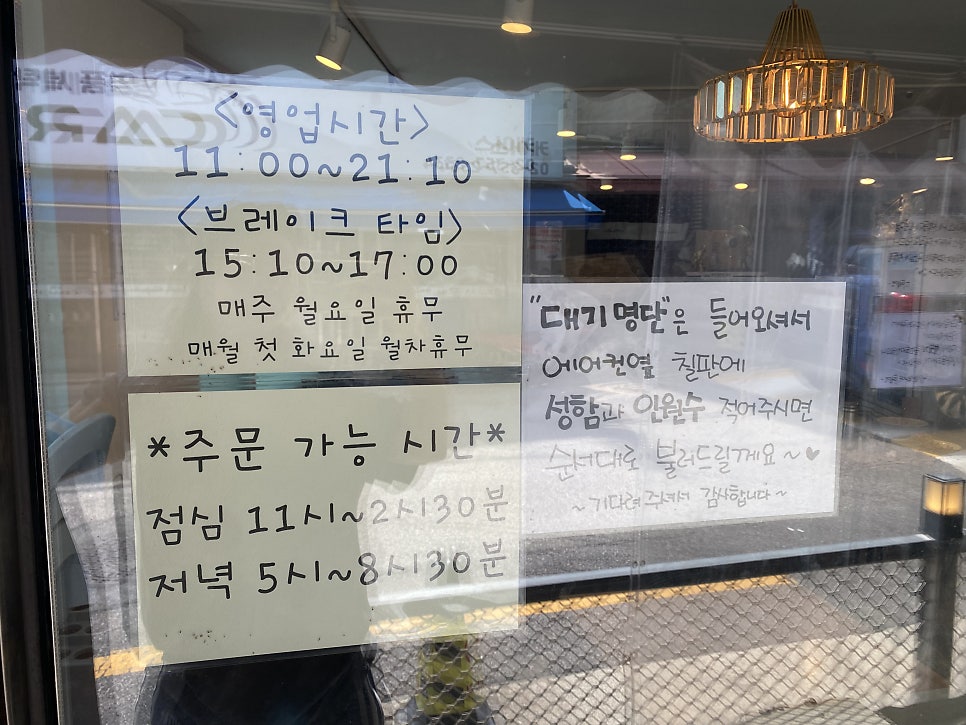 <영업시간>
11:00~21:10
<브레이크 타임>
15:10~17:00
매주 월요일 휴무
매월 첫 화요일 월차휴무
*주문 가능 시간*
점심 11시~2시30분
저녁 5시~8시30분
"대기 명단"은 들어오셔서
에어컨옆 칠판에
성함과 인원수 적어주시면
순서대로 불러드릴게요~♥
~기다려주셔서 감사합니다~